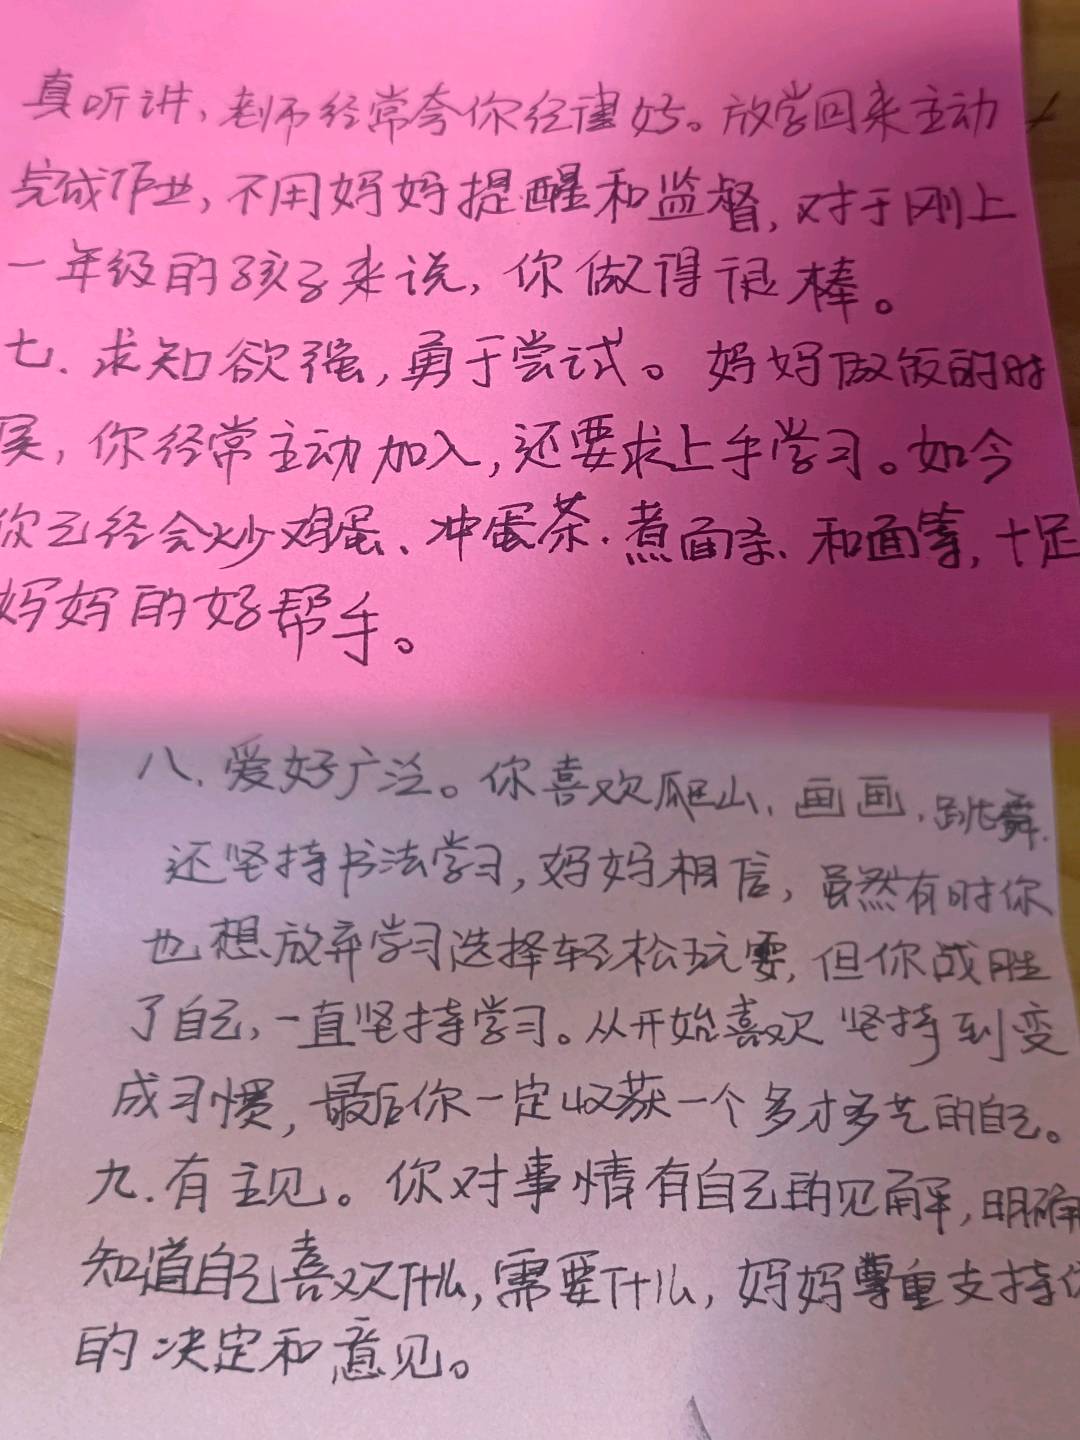 真听讲，老师经常夸你纪律好。放学回来主动
完成作业，不用妈妈提醒和监督，对于刚上
一年级的孩子来说，你做得很棒。
七.求知欲强，勇于尝试。妈妈做饭的时
候，你经常主动加入，还要求上手学习。如今
你已经会炒鸡蛋、冲蛋茶.煮面条、和面等，十足
妈妈的好帮手。
八.爱好广泛。你喜欢爬山、画画、跳舞.
还坚持书法学习，妈妈相信，虽然有时你
也想放弃学习选择轻松玩耍，但你战胜
了自己，一直坚持学习。从开始喜欢坚持到变
成习惯，最后你一定收获一个多才多艺的自己。
九.有主见。你对事情有自己的见解，明确
知道自己喜欢什么，需要什么，妈妈尊重支持你
的决定和意见。